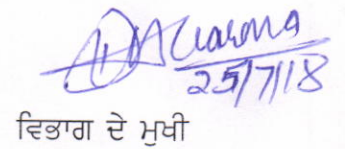 25/7/18
ਵਿਭਾਗ ਦੇ ਮੁਖੀ